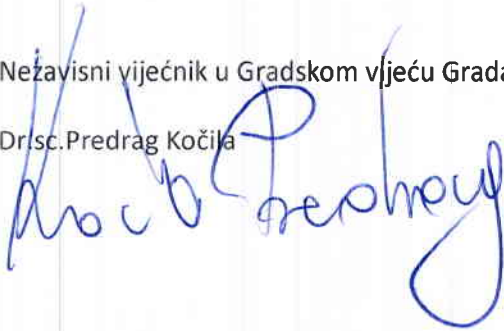 Nezavisni vijećnik u Gradskom vijeću Grada
Dr.sc.Predrag Kočila